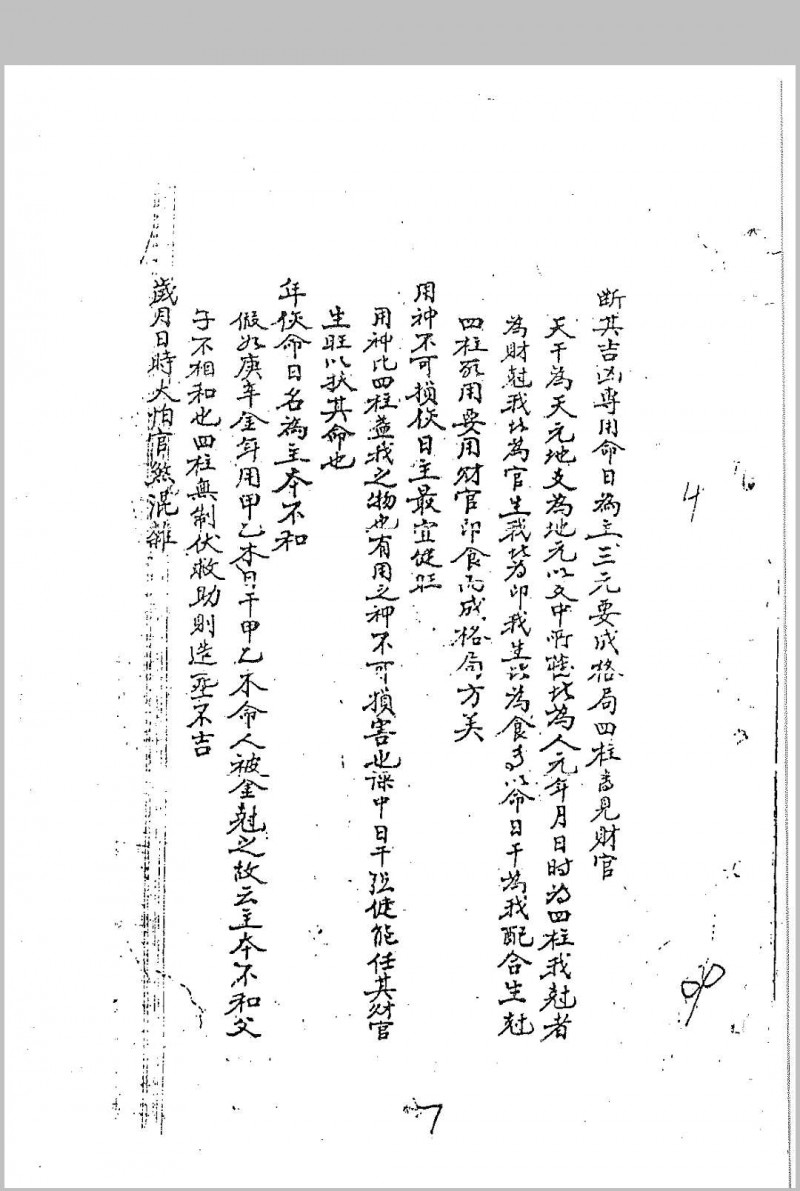 断其吉凶専用命日為主三元要成格局四柱喜見財官
天干為天元地支為地元以支中所藏此為人元年月日时为四柱我尅者
為財尅我此為官生我此为印我生此為食了以命日干為我配合生尅
四柱所用要用财官印食而成格局方美
用神不可損伤日主最宜健旺
用神此四柱益我之物也有用之神不可損害也課中日干强健能任其财官
生旺以扶其命也
年伤命日名為主本不和
假如庚年金年用甲乙木日干甲乙木命人被金尅之故云主本不和父
子不相和也四柱無制伏救助則造巫不吉
歲月日時大怕官煞混雜
4
90
7